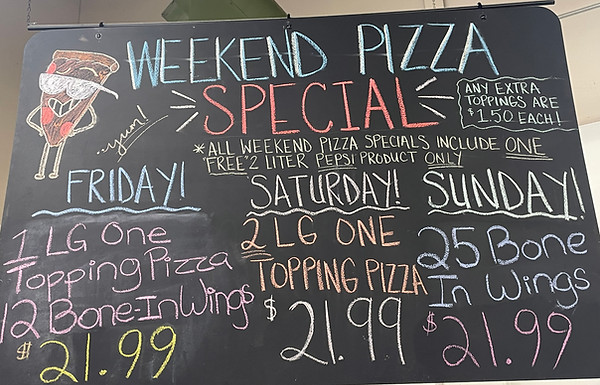 WEEKEND PIZZA
SPECIAL
..yum!
ANY EXTRA
TOPPINGS ARE
$1.50 EACH!
*ALL WEEKEND PIZZA SPECIALS INCLUDE ONE
"FREE" 2 LITER PEPSI PRODUCT ONLY
FRIDAY!
1 LG One
Topping Pizza
12 Bone-In Wings
$21.99
SATURDAY!
2 LG ONE
TOPPING PIZZA
$21.99
SUNDAY!
25 Bone
In Wings
$21.99